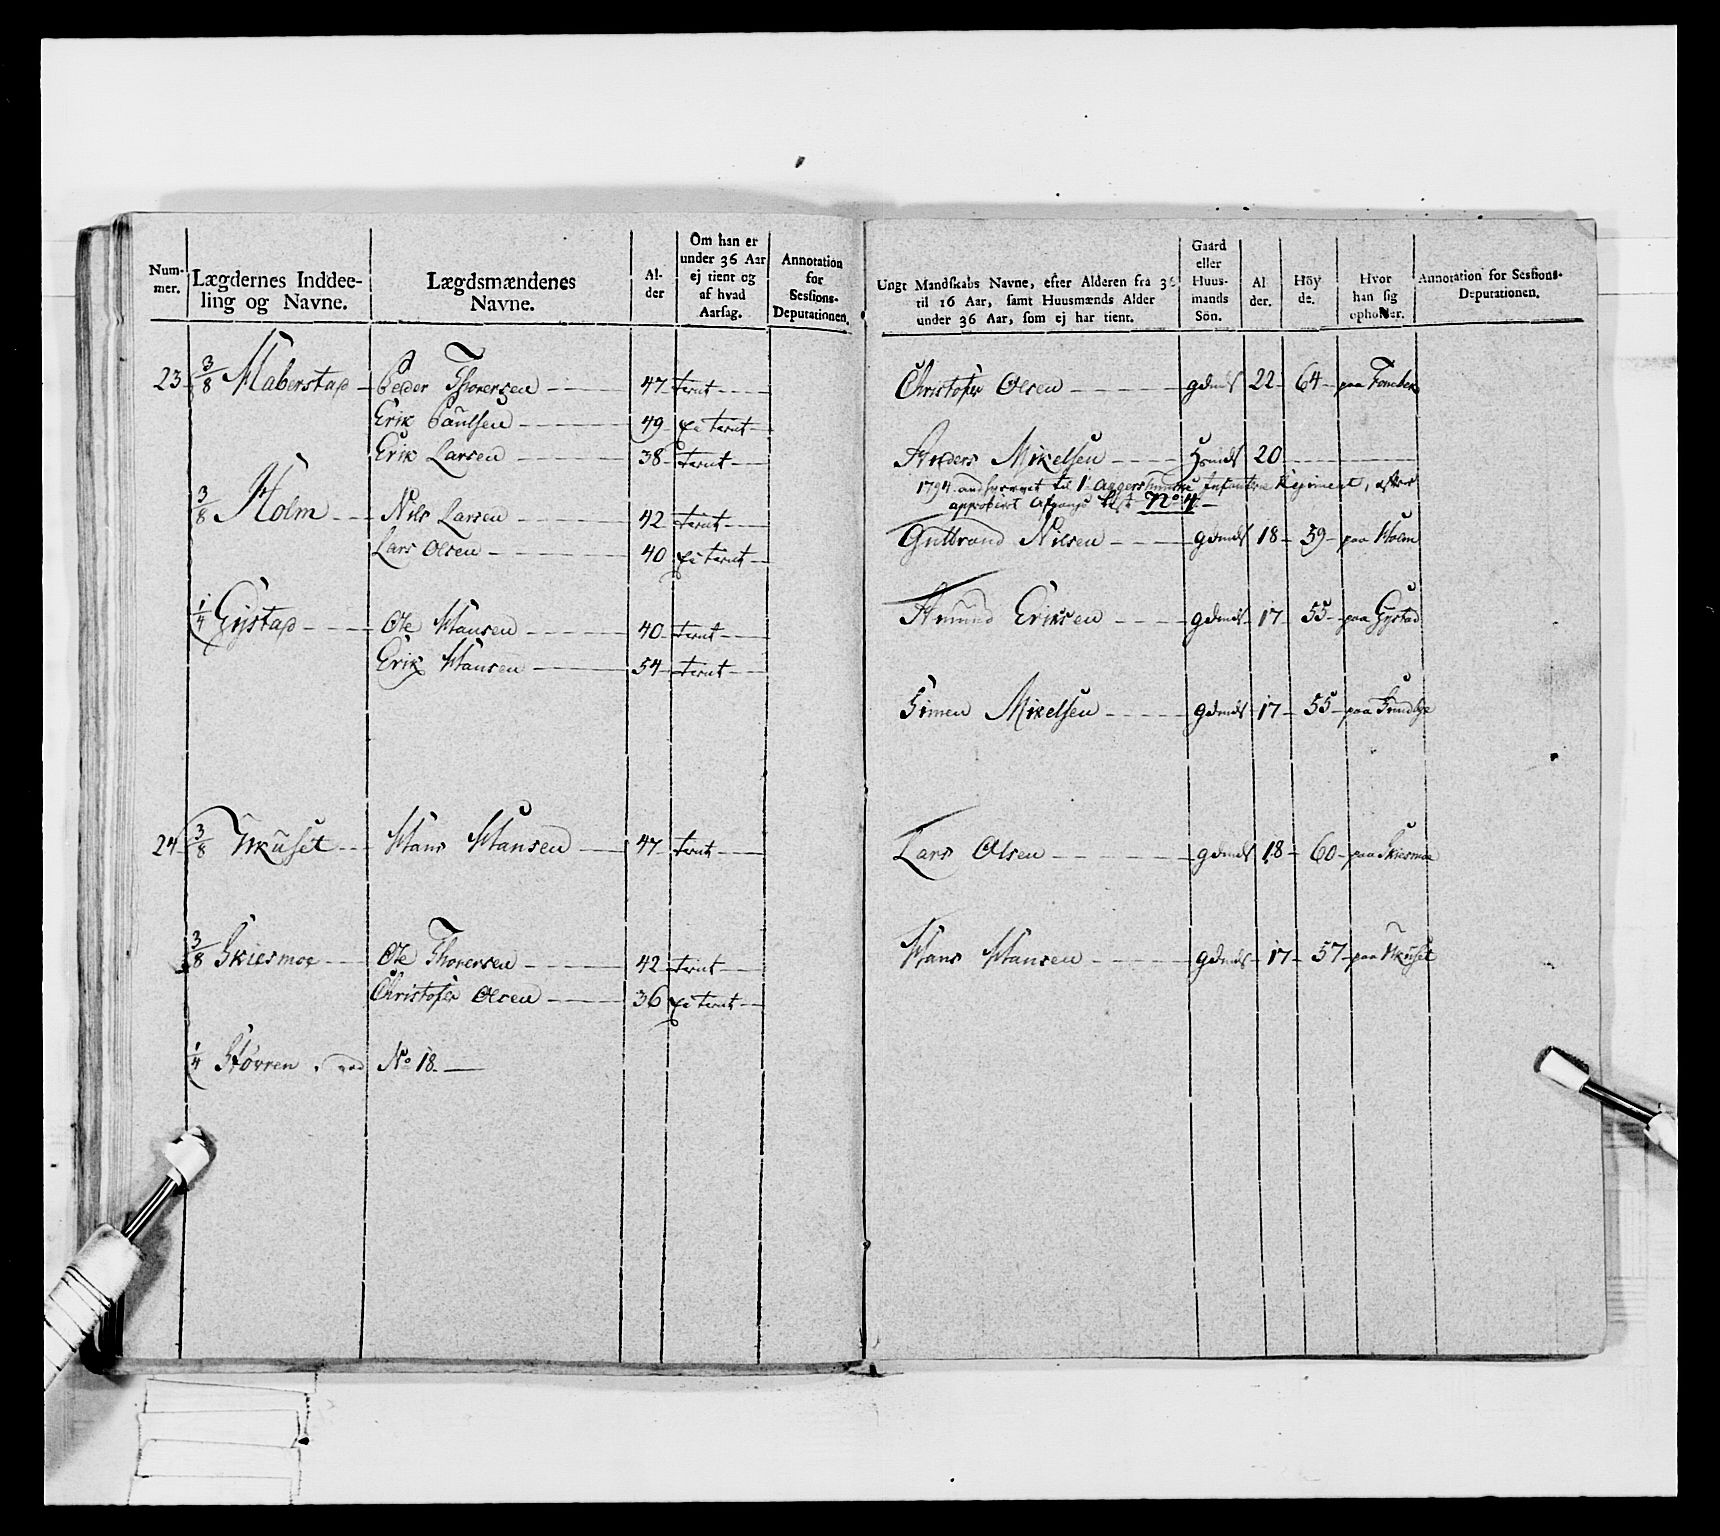 Num-
mer.
Lægdernes Inddee-
ling og Navne.
Lægdsmændenes
Navne.
Al-
der
Om han er
under 36 Aar
ej tient og
af hvad
Aarsag.
Annotation
for
Sessions-
Deputationen.
23 3/8 Haberstad Peder Thoresen 47 tient
Erik Paulsen 49 ej tient
Erik Larsen 38 tient
3/8 Holm Nils Larsen 42 tient
Lars Olsen 40 ej tient
1/4 Gystad Ole Hansen 40 tient
Erik Hansen 54 tient
24 3/8 Hans Hansen 47 tient
3/8 Skiesmoe Ole Thoresen 42 tient
Christofer Olsen 36 ej tient
1/4 Størren ved No 18
Ungt Mandskabs Navne, efter Alderen fra 36
til 16 Aar, samt Huusmænds Alder
under 36 Aar, som ej har tient.
Gaard
eller
Huus-
mands
Sön.
Al
der.
Höy
de.
Hvor
han sig
opholder.
Annotation for Sessions-
Deputationen.
Christofer Olsen gdmds 22 64 paa
Anders Mikelsen Hsmds 20
1794 til 1te Aggershuuske Infanterie Regiment, efter
approbert Afgangs Liste No 4
Gulbrand Nilsen gdmds 18 59 paa Holm
Amund Eriksen gdmds 17 55 paa Gystad
Simen Mikelsen gdmds 17 55 paa
Lars Olsen gdmds 18 60 paa Skiesmoe
Hans Hansen gdmds 17 57 paa